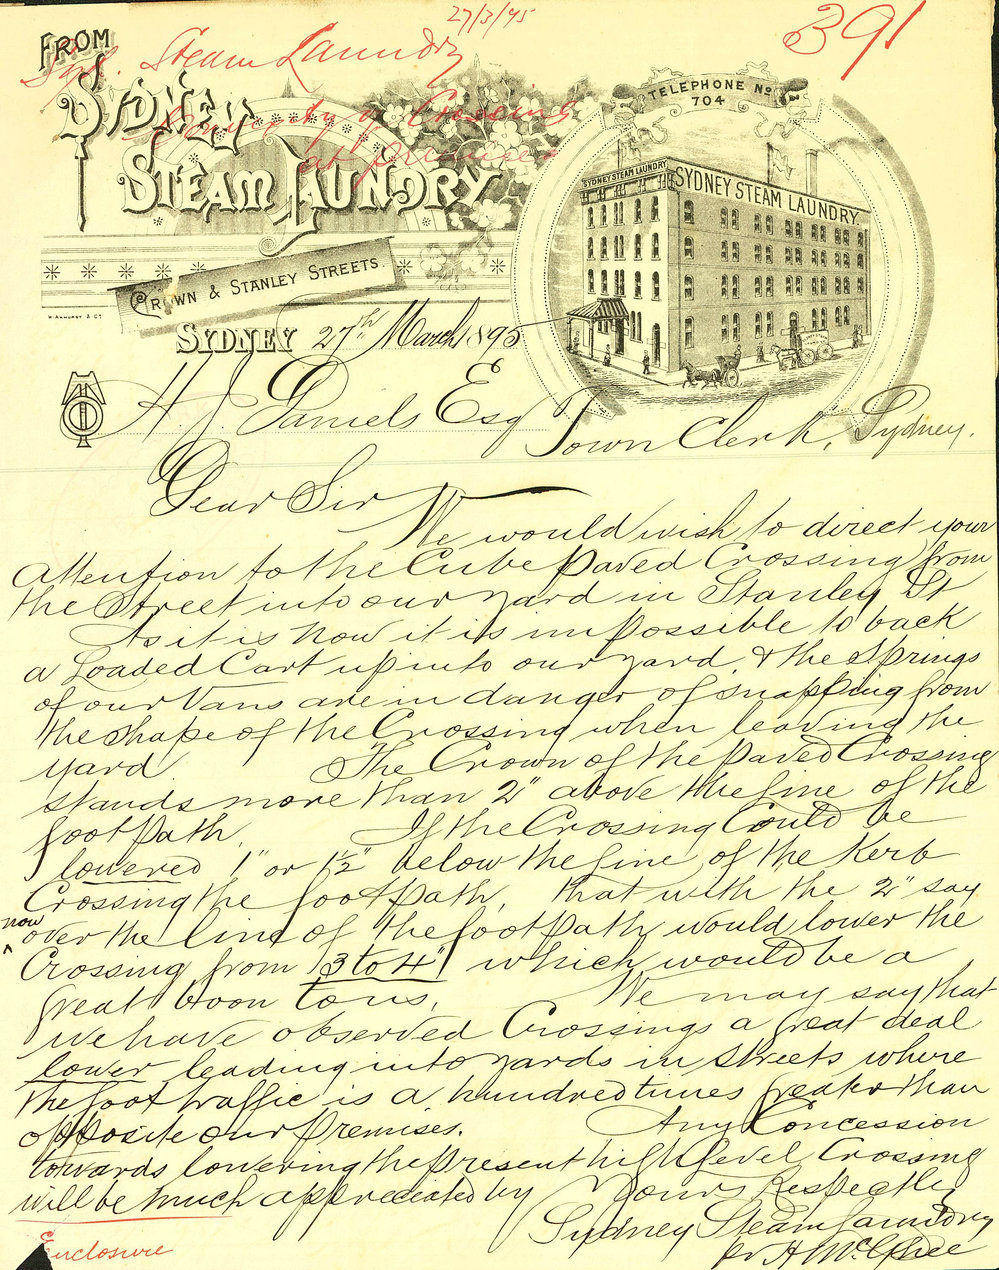 27/3/95
391
Syd. Steam Laundry
Crossing
at premises
FROM
SYDNEY
STEAM LAUNDRY
CROWN & STANLEY STREETS.
TELEPHONE No
704
SYDNEY STEAM LAUNDRY
SYDNEY STEAM LAUNDRY
SYDNEY 27th March 1895
H. J. Daniels Esq Town Clerk, Sydney.
Dear Sir
We would wish to direct your
attention to the Cube paved Crossing from
the Street into our yard in Stanley St
As it is now it is impossible to back
a Loaded Cart up into our yard, & the springs
of our Vans are in danger of snapping from
the shape of the Crossing when leaving the
yard. The Crown of the paved Crossing
stands more than 2" above the line of the
footpath. If the Crossing Could be
lowered 1" or 1½" below the line of the Kerb
Crossing the footpath, that with the 2" say
now over the line of the footpath would lower the
Crossing from 3 to 4" which would be a
great boon to us. We may say that
we have observed Crossings a great deal
lower leading into yards in streets where
the foot traffic is a hundred times greater than
opposite our premises. Any Concession
towards lowering the present high level Crossing
will be much appreciated by Yours Respectly
Sydney Steam Laundry
Enclosure